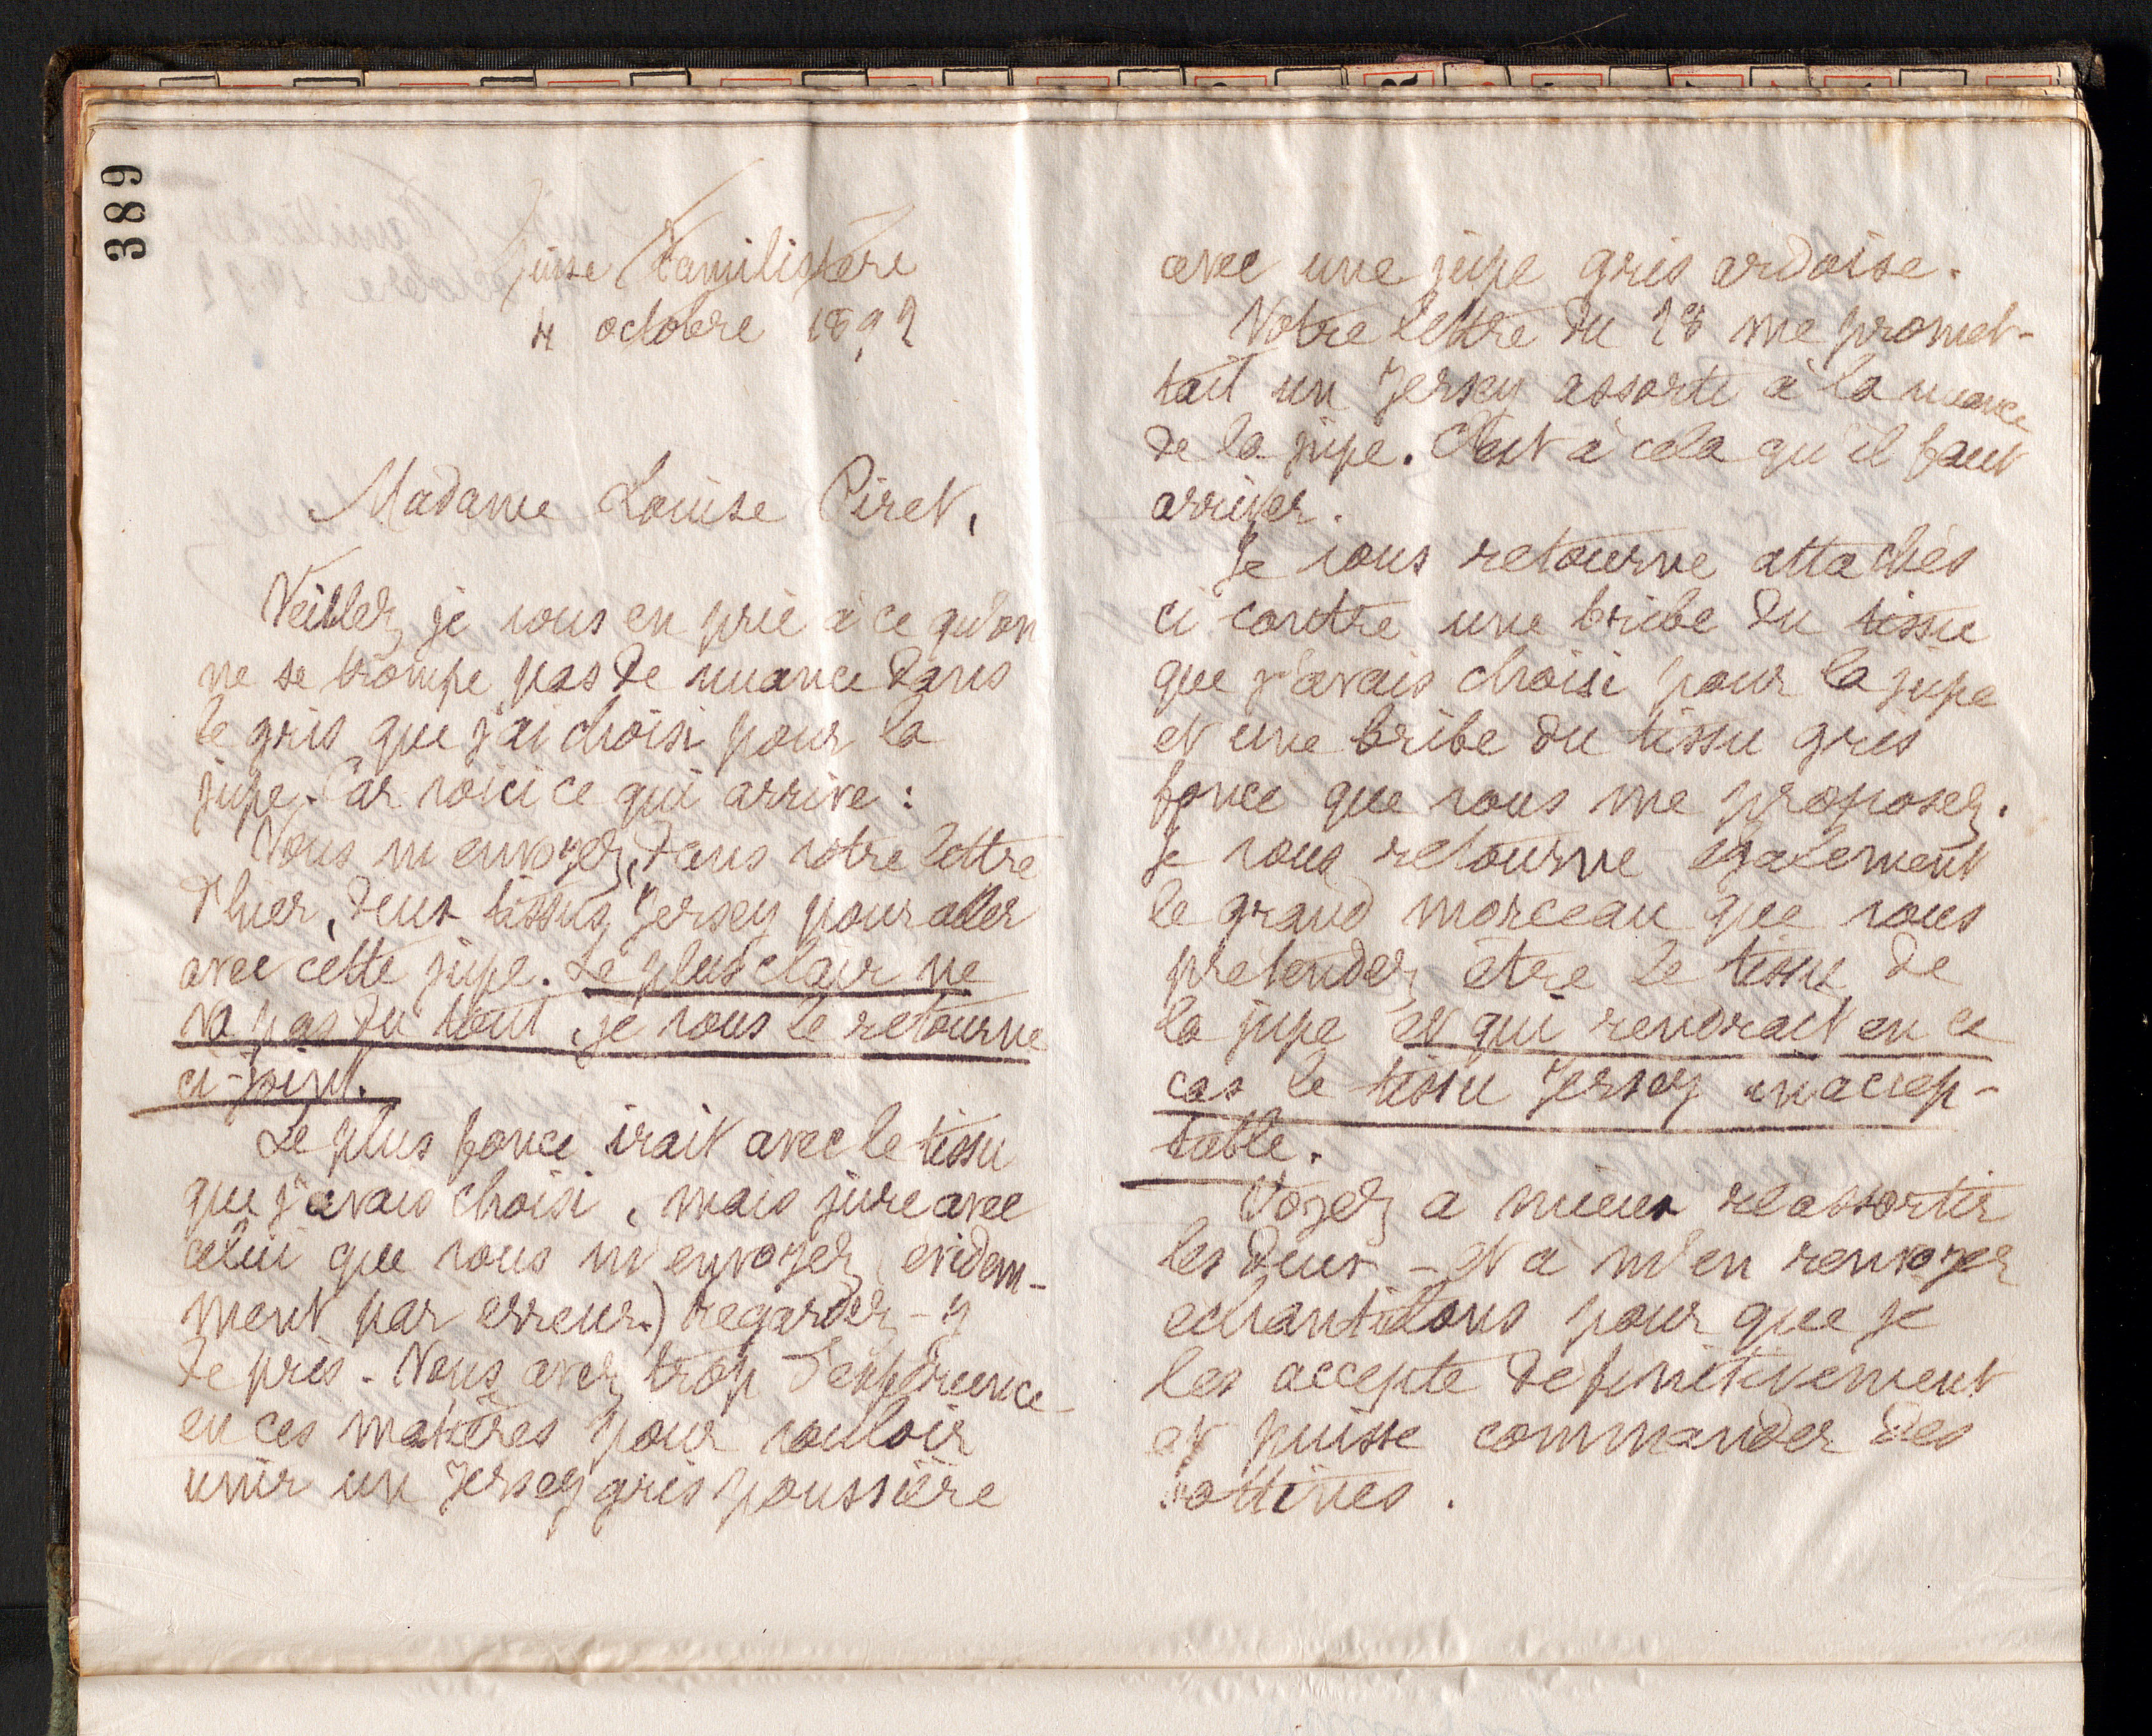 389
Guise Familistère
4 octobre 1892
Madame Louise Piret,
Veillez, je vous en prie à ce qu'on
ne se trompe pas de nuance dans
le gris que j'ai choisi pour la
jupe. Car voici ce qui arrive :
Vous m'envoyez, dans votre lettre
d'hier, deux tissus Jersey pour aller
avec cette jupe. Le plus clair ne
va pas du tout, je vous le retourne
ci-joint.
Le plus foncé irait avec le tissu
que j'avais choisi, mais jure avec
celui que vous m'envoyez (evidem-
ment par erreur.) regardez-y
de près. Vous avez trop d'expérience
en ces matières pour vouloir
unir un Jersey gris poussière
avec une jupe gris ardoise.
Votre lettre du 28 me promet-
tait un Jersey assorti à la nuance
de la jupe. C'est à cela qu'il faut
arriver.
Je vous retourne attachés
ci contre une bribe du tissu
que j'avais choisi pour la jupe
et une bribe du tissu gris
foncé que vous me proposez.
Je vous retourne également
le grand morceau que vous
prétendez être le tissu de
la jupe et qui rendrait en ce
cas le tissu Jersey inaccep-
table.
Voyez a mieux réassortir
les deux - et a m'en renvoyer
echantillons pour que je
les accepte définitivement
et puisse commander des
bottines.